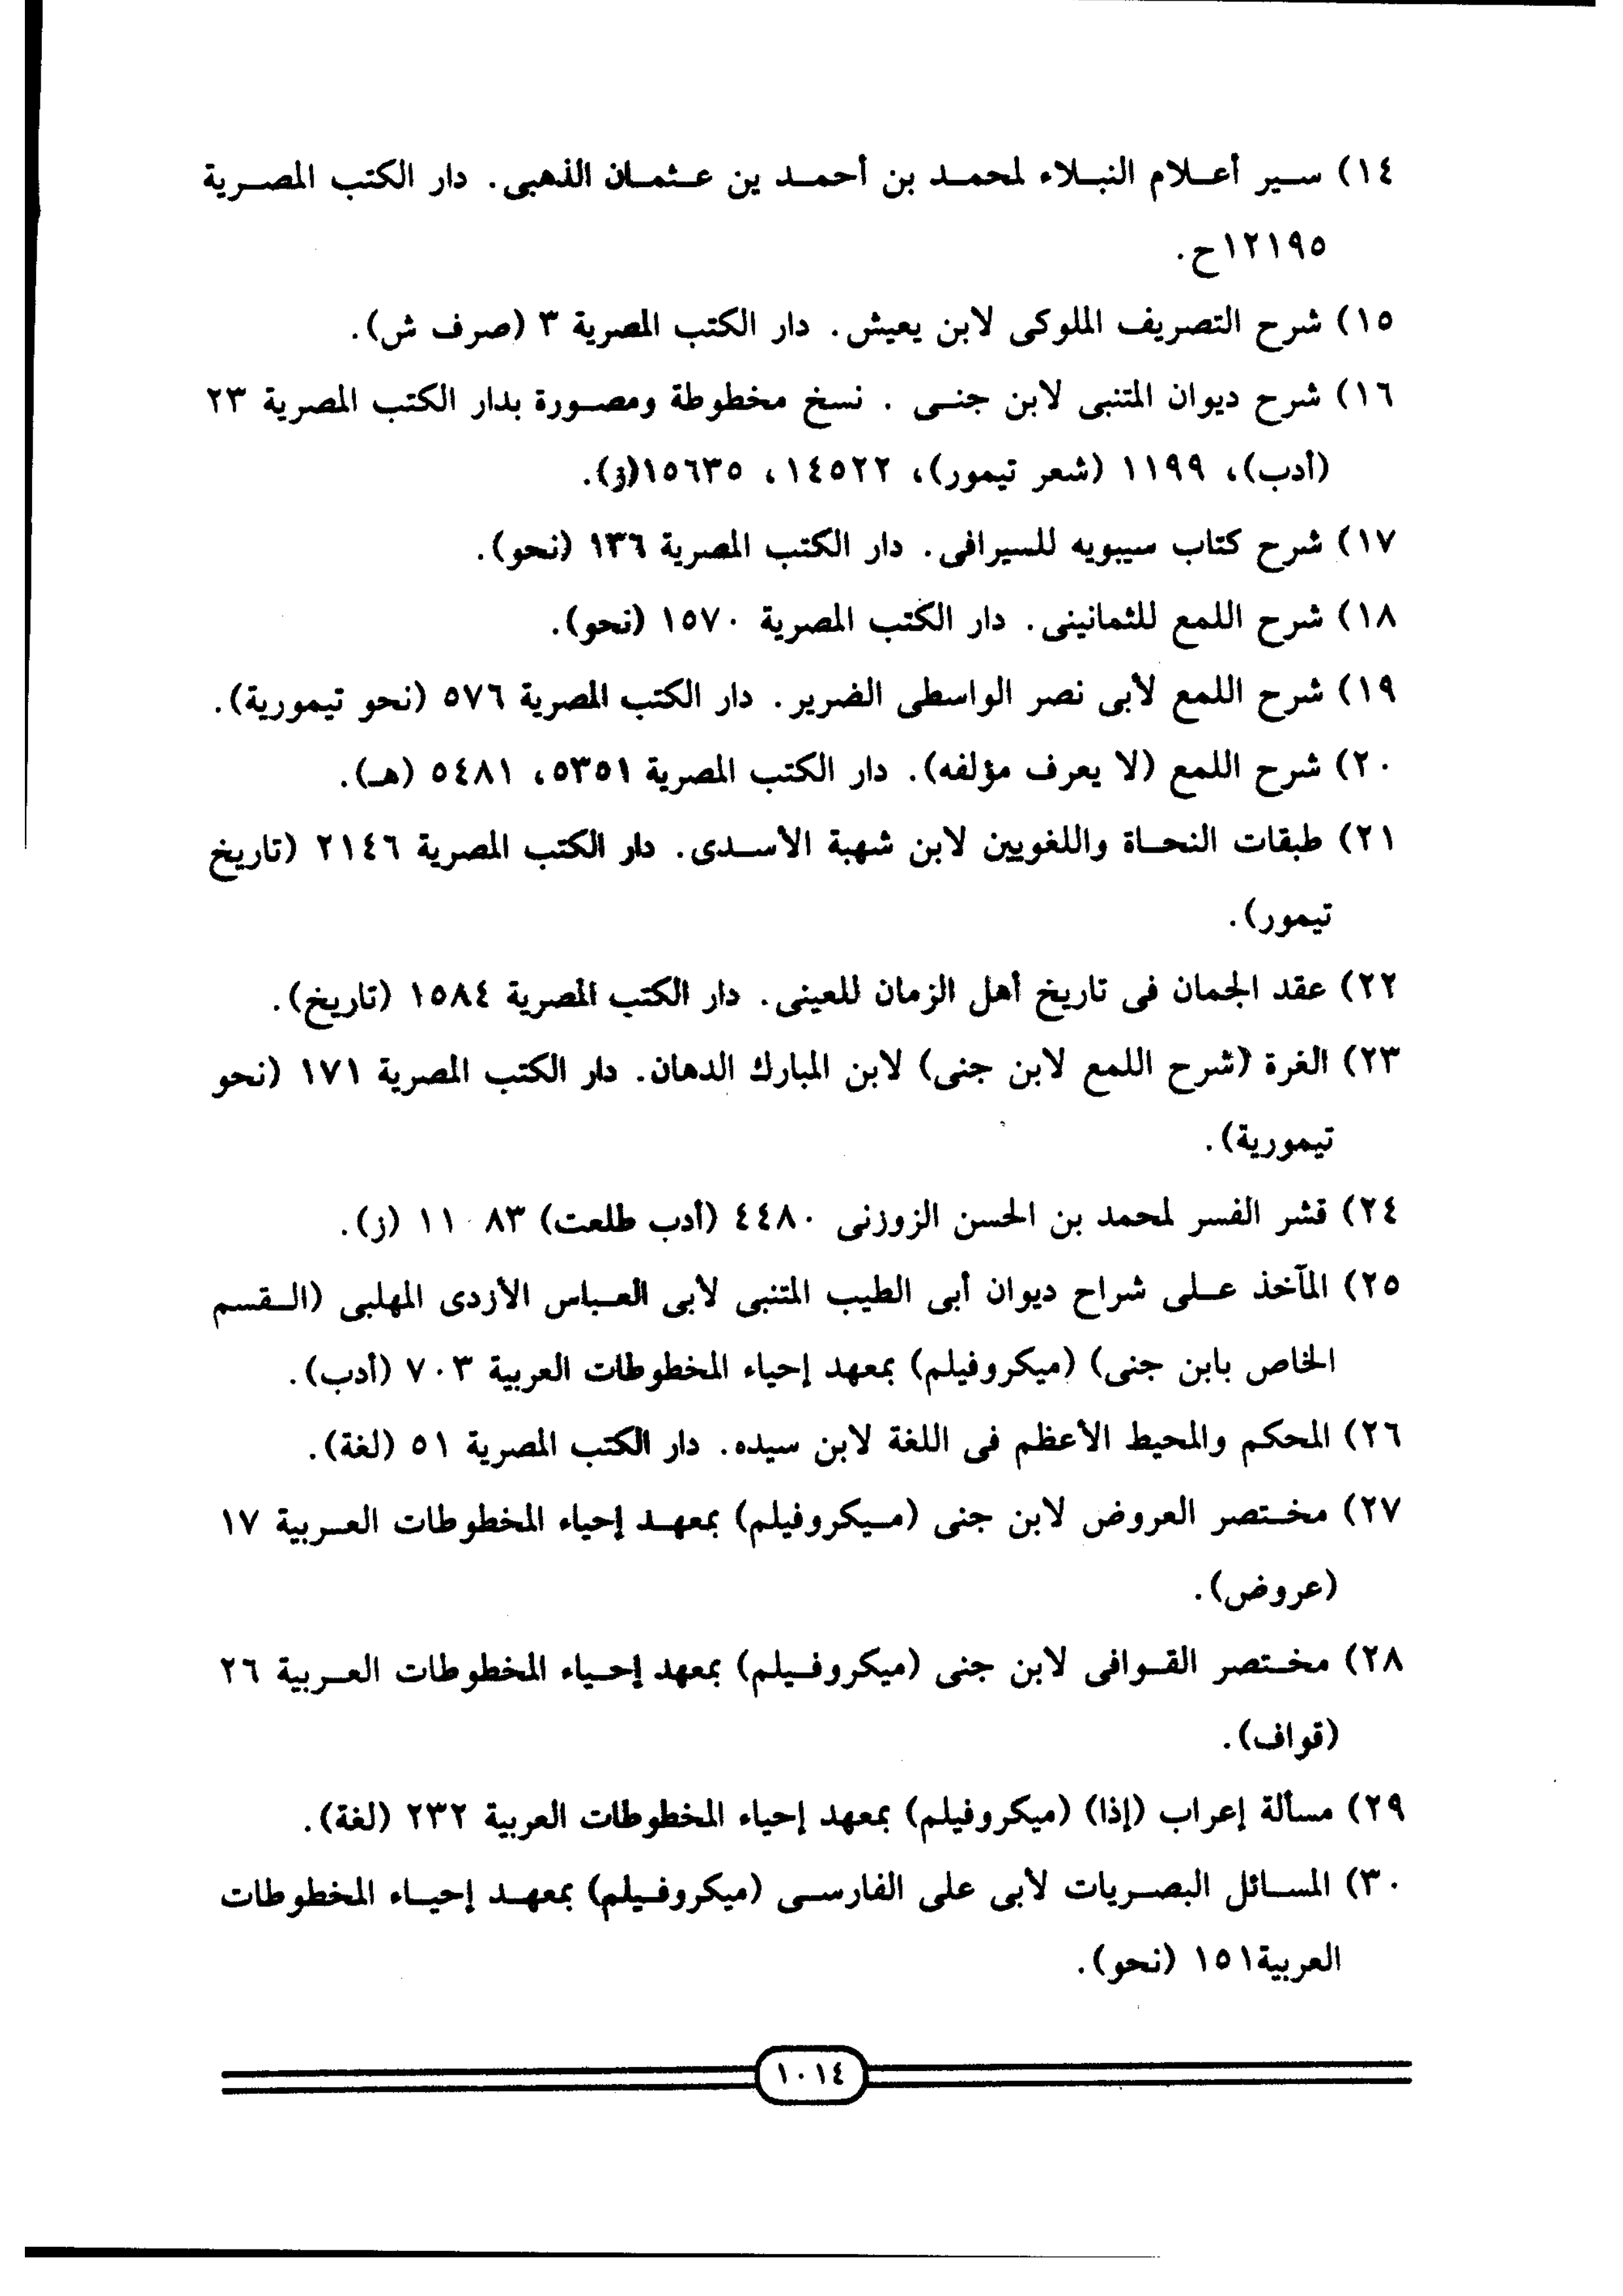 ١٤) سير أعلام النبلاء لمحمد بن أحمد ين عثمان الذهبى. دار الكتب المصرية
١٢١٩٥ح.
١٥) شرح التصريف الملوكى لابن يعيش. دار الكتب المصرية ٣ (صرف ش).
١٦) شرح ديوان المتنبى لابن جنى . نسخ مخطوطة ومصورة بدار الكتب المصرية ٢٣
(أدب)، ١١٩٩ (شعر تيمور)، ١٤٥٢٢، ١٥٦٣٥(ز).
١٧) شرح كتاب سيبويه للسيرافى. دار الكتب المصرية ١٣٦ (نحو).
١٨) شرح اللمع للثمانينى. دار الكتب المصرية ١٥٧٠ (نحو).
١٩) شرح اللمع لأبى نصر الواسطى الضرير. دار الكتب المصرية ٥٧٦ (نحو تيمورية).
٢٠) شرح اللمع (لا يعرف مؤلفه). دار الكتب المصرية ٥٣٥١، ٥٤٨١ (هـ).
٢١) طبقات النحاة واللغويين لابن شهبة الأسدى. دار الكتب المصرية ٢١٤٦ (تاريخ
تيمور).
٢٢) عقد الجمان فى تاريخ أهل الزمان للعينى. دار الكتب المصرية ١٥٨٤ (تاريخ).
٢٣) الغرة (شرح اللمع لابن جنى) لابن المبارك الدهان. دار الكتب المصرية ١٧١ (نحو
تيمورية).
٢٤) قشر الفسر لمحمد بن الحسن الزوزنى ٤٤٨٠ (أدب طلعت) ١١٠٨٣ (ز).
٢٥) المآخذ على شراح ديوان أبى الطيب المتنبى لأبى العباس الأزدى المهلبى (القسم
الخاص بابن جنى) (ميكروفيلم) بمعهد إحياء المخطوطات العربية ٧٠٣ (أدب).
٢٦) المحكم والمحيط الأعظم فى اللغة لابن سيده. دار الكتب المصرية ٥١ (لغة).
٢٧) مختصر العروض لابن جنى (ميكروفيلم) بمعهد إحياء المخطوطات العربية ١٧
(عروض).
٢٨) مختصر القوافى لابن جنى (ميكروفيلم) بمعهد إحياء المخطوطات العربية ٢٦
(قواف).
٢٩) مسألة إعراب (إذا) (ميكروفيلم) بمعهد إحياء المخطوطات العربية ٢٣٢ (لغة).
٣٠) المسائل البصريات لأبى على الفارسى (ميكروفيلم) بمعهد إحياء المخطوطات
العربية١٥١ (نحو).
١٠١٤